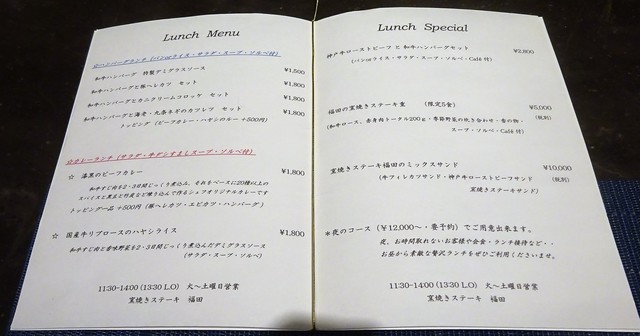 Lunch Menu
☆ハンバーグランチ (パンorライス・サラダ・スープ・ソルベ付)
和牛ハンバーグ 特製デミグラスソース ¥1,500
和牛ハンバーグと豚ヘレカツ セット ¥1,800
和牛ハンバーグとカニクリームコロッケ セット ¥1,800
和牛ハンバーグと海老・九条ネギのカツレツ セット ¥1,800
トッピング (ビーフカレー・ハヤシのルー +500円)
☆カレーランチ (サラダ・牛グシすましスープ・ソルベ付)
☆ 漆黒のビーフカレー ¥1,800
和牛すじ肉を2・3日間じっくり煮込み、それをベースに20種以上の
スパイスと黒豆と竹炭など練り込んで作るシェフオリジナルカレーです
トッピング一品 +500円 (豚ヘレカツ・エビカツ・ハンバーグ)
☆ 国産牛リブロースのハヤシライス ¥1,800
和牛すじ肉と香味野菜を2・3日間じっくり煮込んだデミグラスソース
(サラダ・スープ・ソルベ)
11:30-14:00 (13:30 L.O) 火~土曜日営業
窯焼きステーキ 福田
Lunch Special
神戸牛ローストビーフ と 和牛ハンバーグセット ¥2,800
(パンorライス・サラダ・スープ・ソルベ・Café 付)
福田の窯焼きステーキ重 (限定5食) ¥5,000
(和牛ロース、赤身肉トータル200g・季節野菜の炊き合わせ・香の物・ (税別)
スープ・ソルベ・Café付)
窯焼きステーキ福田のミックスサンド ¥10,000
(牛フィレカツサンド・神戸牛ローストビーフサンド (税別)
窯焼きステーキサンド)
*夜のコース (¥12,000~・要予約) でご用意出来ます。
夜、お時間取れないお客様や会食・ランチ接待など・・
お昼から素敵な贅沢ランチをぜひご利用くださいませ。
11:30-14:00 (13:30 L.O) 火~土曜日営業
窯焼きステーキ 福田